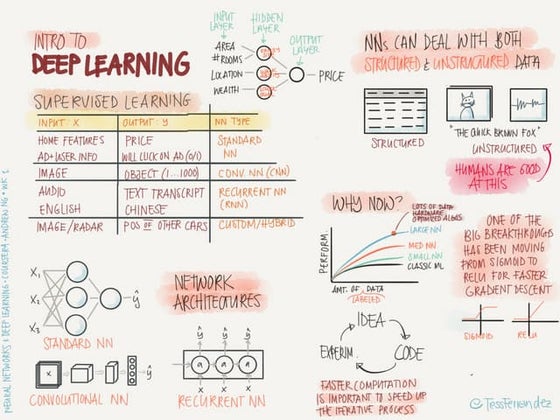 INTRO TO
DEEP LEARNING
INPUT LAYER
HIDDEN LAYER
OUTPUT LAYER
AREA
#ROOMS
LOCATION
WEALTH
PRICE
SUPERVISED LEARNING
INPUT: X OUTPUT: y NN TYPE
HOME FEATURES PRICE STANDARD NN
AD+USER INFO WILL CLICK ON AD (0/1)
IMAGE OBJECT (1...1000) CONV. NN (CNN)
AUDIO TEXT TRANSCRIPT RECURRENT NN (RNN)
ENGLISH CHINESE
IMAGE/RADAR POS OF OTHER CARS CUSTOM/HYBRID
NNs CAN DEAL WITH BOTH
STRUCTURED & UNSTRUCTURED DATA
STRUCTURED
"THE QUICK BROWN FOX"
UNSTRUCTURED
HUMANS ARE GOOD
AT THIS
WHY NOW?
LOTS OF DATA
HARDWARE
OPTIMIZED ALGOS
LARGE NN
MED NN
SMALL NN
CLASSIC ML
PERFORM.
AMT. OF DATA
LABELED
ONE OF THE
BIG BREAKTHROUGHS
HAS BEEN MOVING
FROM SIGMOID TO
RELU FOR FASTER
GRADIENT DESCENT
SIGMOID
RELU
IDEA
CODE
EXPERIM.
FASTER COMPUTATION
IS IMPORTANT TO SPEED UP
THE ITERATIVE PROCESS
NETWORK
ARCHITECTURES
X₁
X₂
X₃
ŷ
STANDARD NN
ŷ
CONVOLUTIONAL NN
ŷ ŷ ŷ
a a a
X X X
RECURRENT NN
NEURAL NETWORKS & DEEP LEARNING • COURSERA • ANDREW NG • WK 1
@TessFerrandez